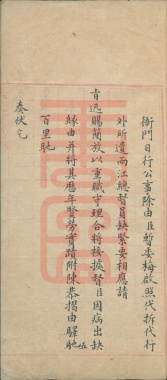 衙門日行公事除由臣暫委梅啟照代拆代行
外所遺兩江總督員缺緊要相應請
旨迅賜簡放以重職守理合將接據督臣因病出缺
緣由并將其歷年賢勞實蹟附陳恭摺由驛馳
五
百里馳
奏伏乞